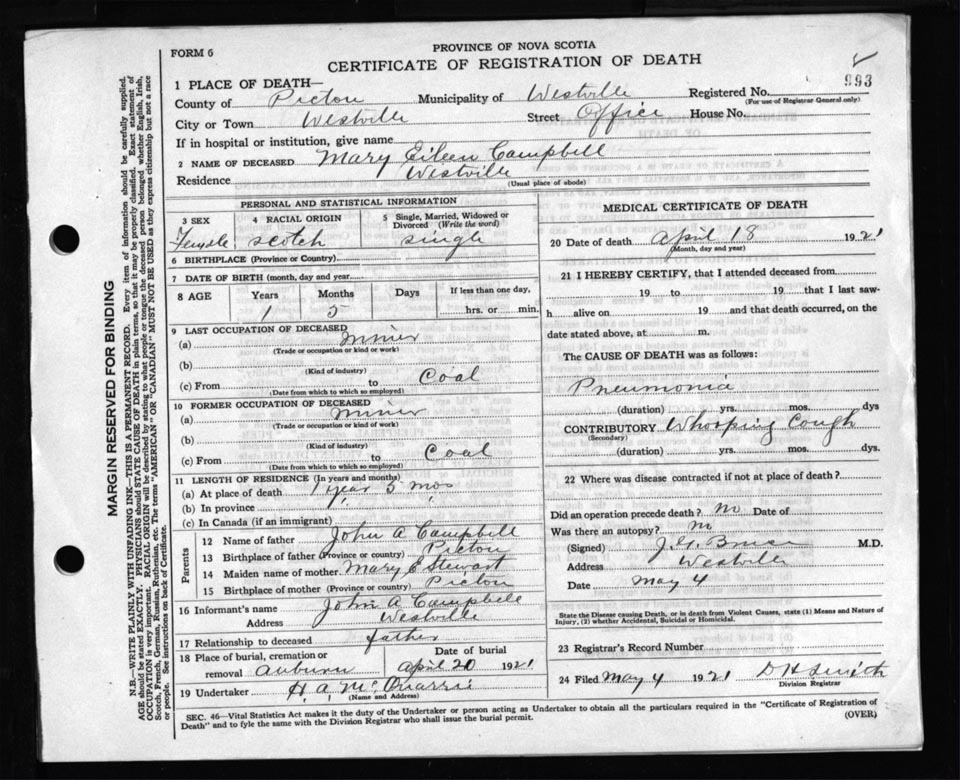 FORM 6
PROVINCE OF NOVA SCOTIA
CERTIFICATE OF REGISTRATION OF DEATH
993
1 PLACE OF DEATH—
County of Pictou Municipality of Westville Registered No.
(For use of Registrar General only)
City or Town Westville Street Office House No.
If in hospital or institution, give name
2 NAME OF DECEASED Mary Eileen Campbell
Residence Westville
(Usual place of abode)
PERSONAL AND STATISTICAL INFORMATION
3 SEX 4 RACIAL ORIGIN 5 Single, Married, Widowed or Divorced (Write the word)
Female Scotch Single
6 BIRTHPLACE (Province or Country)
7 DATE OF BIRTH (month, day and year)
8 AGE Years Months Days If less than one day,
1 5 hrs. or min.
9 LAST OCCUPATION OF DECEASED
(a) miner
(Trade or occupation or kind or work)
(b)
(Kind of industry)
(c) From to Coal
(Date from which to which so employed)
10 FORMER OCCUPATION OF DECEASED
(a) miner
(Trade or occupation or kind of work)
(b)
(Kind of industry)
(c) From to Coal
(Date from which to which so employed)
11 LENGTH OF RESIDENCE (In years and months)
(a) At place of death 1 year 5 mos
(b) In province " "
(c) In Canada (if an immigrant)
Parents
12 Name of father John A Campbell
13 Birthplace of father (Province or country) Pictou
14 Maiden name of mother Mary E Stewart
15 Birthplace of mother (Province or country) Pictou
16 Informant's name John A Campbell
Address Westville
17 Relationship to deceased father
18 Place of burial, cremation or removal Auburn Date of burial April 20 1921
19 Undertaker H. A. McQuarrie
(Name and Address)
MEDICAL CERTIFICATE OF DEATH
20 Date of death April 18 1921
(Month, day and year)
21 I HEREBY CERTIFY, that I attended deceased from
19 to 19 that I last saw
h alive on 19 and that death occurred, on the
date stated above, at m.
The CAUSE OF DEATH was as follows:
Pneumonia
(duration) yrs. mos. dys
CONTRIBUTORY Whooping Cough
(Secondary)
(duration) yrs. mos. dys.
22 Where was disease contracted if not at place of death?
Did an operation precede death? no Date of
Was there an autopsy? no
(Signed) M.D.
Address Westville
Date May 4
State the Disease causing Death, or in death from Violent Causes, state (1) Means and Nature of Injury, (2) whether Accidental, Suicidal or Homicidal.
23 Registrar's Record Number
24 Filed May 4 1921 D H Smith
Division Registrar
SEC. 46—Vital Statistics Act makes it the duty of the Undertaker or person acting as Undertaker to obtain all the particulars required in the "Certificate of Registration of
Death" and to fyle the same with the Division Registrar who shall issue the burial permit.
(OVER)
MARGIN RESERVED FOR BINDING
N.B.—WRITE PLAINLY WITH UNFADING INK—THIS IS A PERMANENT RECORD. Every item of information should be carefully supplied.
AGE should be stated EXACTLY. PHYSICIANS should STATE CAUSE OF DEATH in plain terms, so that it may be properly classified. Exact statement of
OCCUPATION is very important. RACIAL ORIGIN will be described by stating to what people or tongue the deceased person belonged whether English, Irish,
Scotch, French, German, Russian, Ruthenian, etc. The terms "AMERICAN" OR "CANADIAN" MUST NOT BE USED as they express citizenship but not a race
or people. See instructions on back of Certificate.